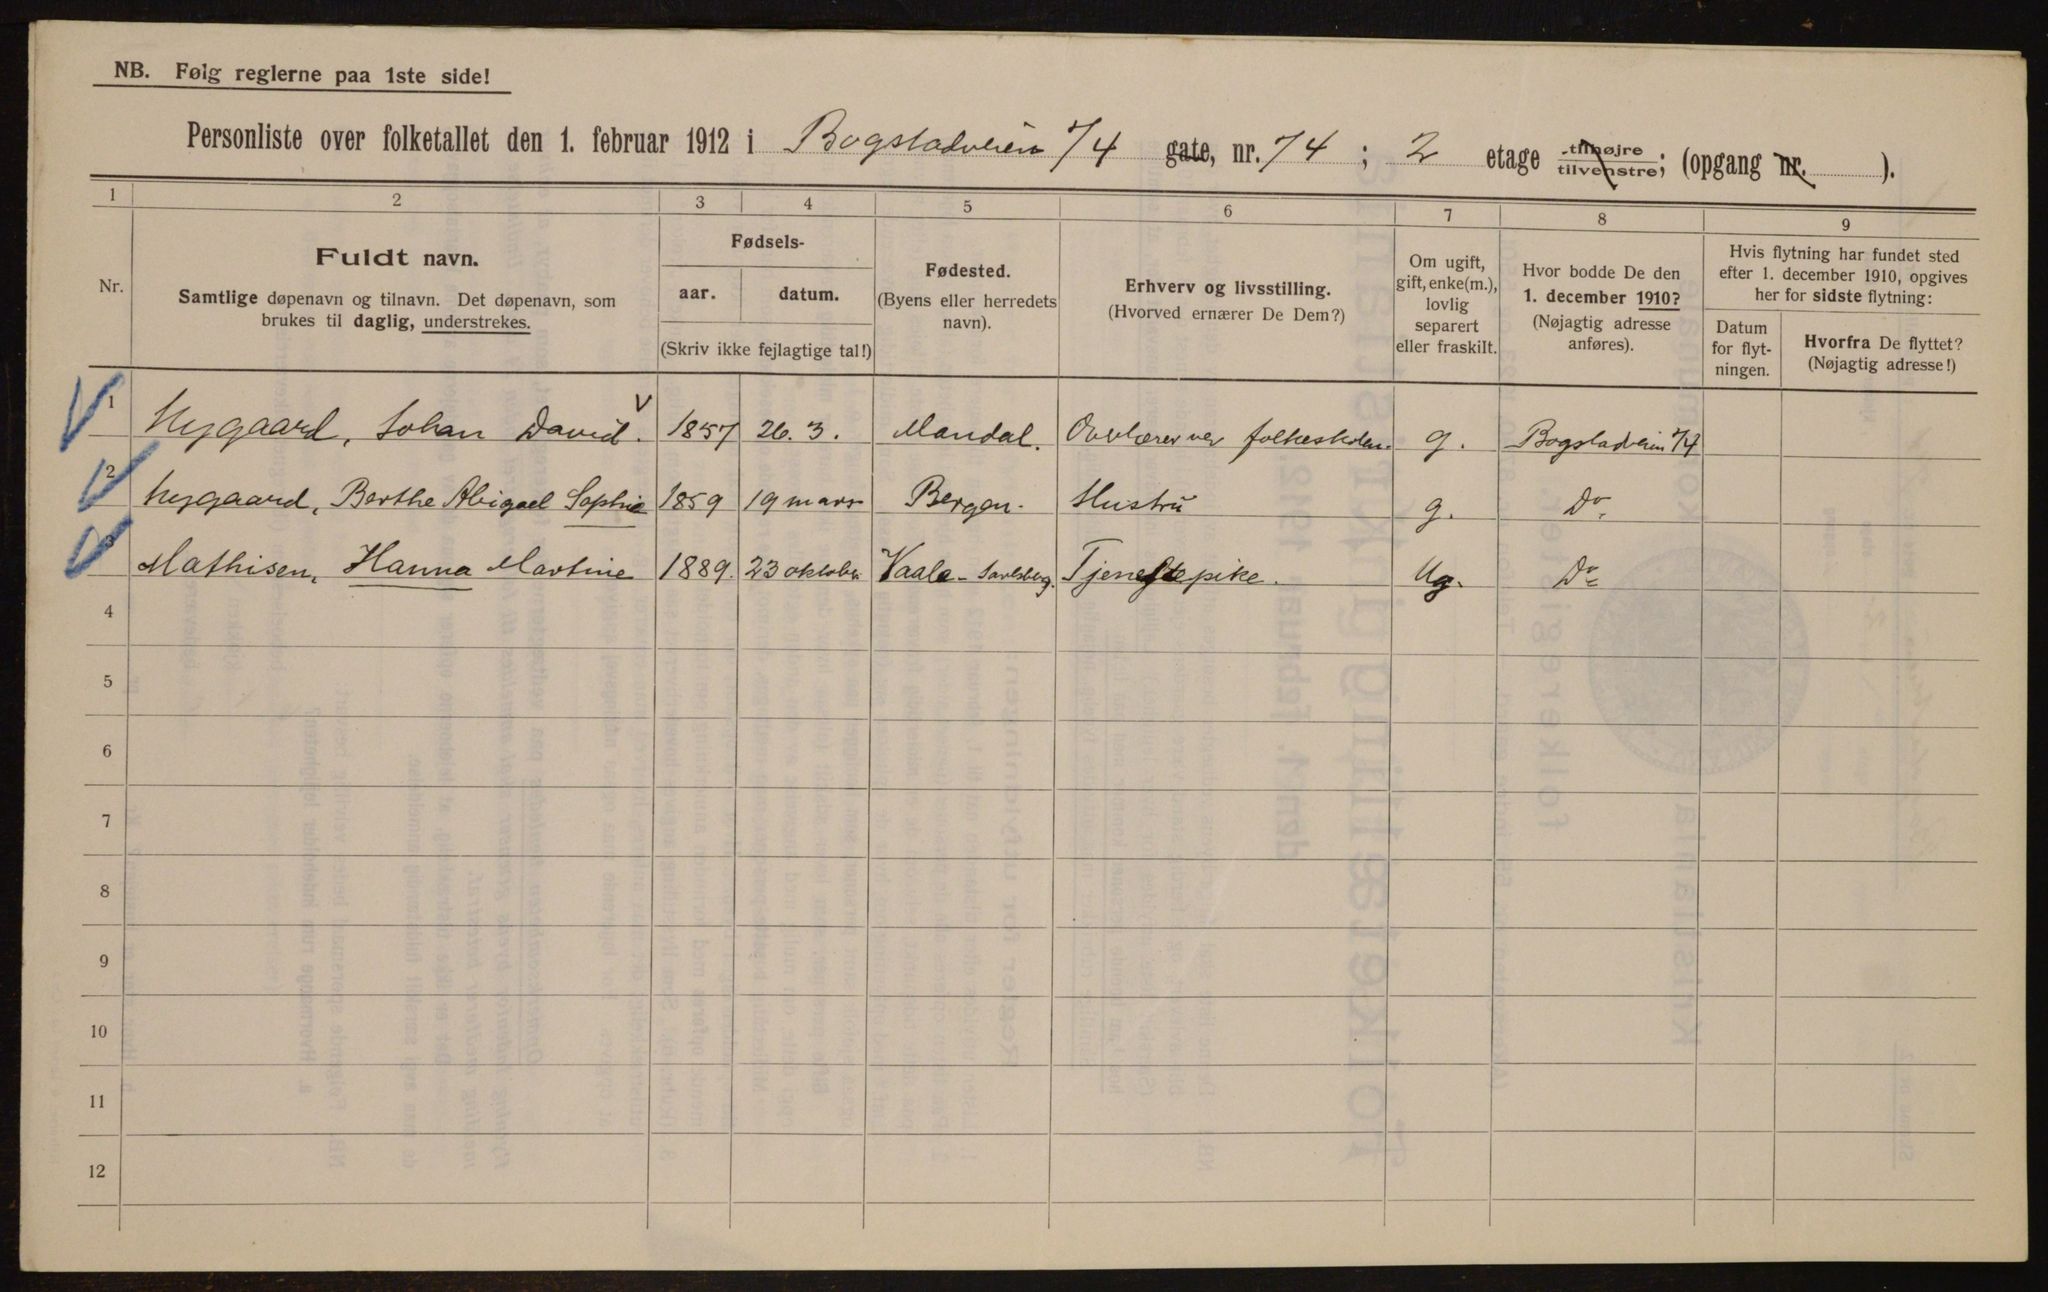 NB. Følg reglerne paa 1ste side!
Personliste over folketallet den 1. februar 1912 i Bogstadveien 74 gate, nr. 74 ; 2 etage tilhøjre tilvenstre; (opgang nr. ).
1 2 3 4 5 6 7 8 9
Nr.
Fuldt navn.
Samtlige døpenavn og tilnavn. Det døpenavn, som
brukes til daglig, understrekes.
Fødsels-
aar. datum.
(Skriv ikke fejlagtige tal!)
Fødested.
(Byens eller herredets
navn).
Erhverv og livsstilling.
(Hvorved ernærer De Dem?)
Om ugift,
gift, enke(m.),
lovlig
separert
eller fraskilt.
Hvor bodde De den
1. december 1910?
(Nøjagtig adresse
anføres).
Hvis flytning har fundet sted
efter 1. december 1910, opgives
her for sidste flytning:
Datum
for flyt-
ningen.
Hvorfra De flyttet?
(Nøjagtig adresse!)
1 Nygaard, Johan David. 1857 26. 3. Mandal. Overlærer ver folkeskolen. g. Bogstadveien 74
2 Nygaard, Berthe Abigael Sophie 1859 19 mars Bergen. Hustru g. Do.
3 Mathisen, Hanna Martine 1889. 23 oktober Vaale - Jarlsberg. Tjenestepike. Ug. Do
4
5
6
7
8
9
10
11
12